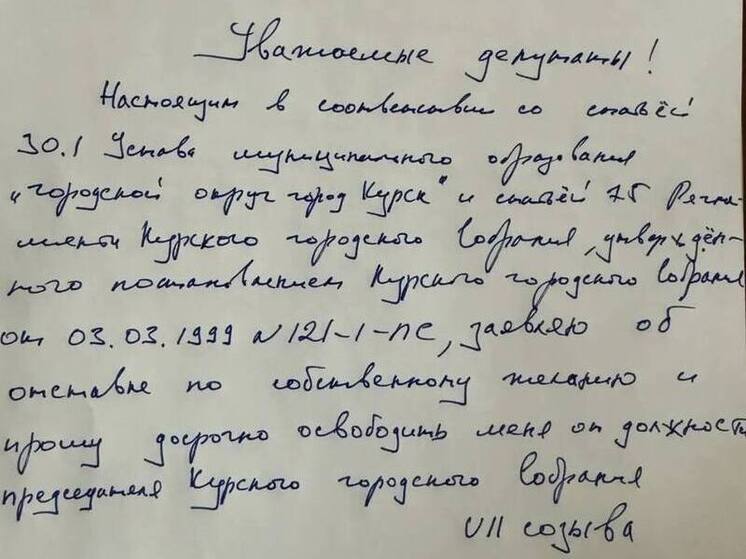 Уважаемые депутаты!
Настоящим в соответствии со статьёй
30.1 Устава муниципального образования
„Городской округ город Курск" и статьёй 75 Регла-
мента Курского городского Собрания, утверждён-
ного постановлением Курского городского Собрания
от 03.03.1999 N121-1-ПС, заявляю об
отставке по собственному желанию и
прошу досрочно освободить меня от должности
председателя Курского городского Собрания
VII созыва